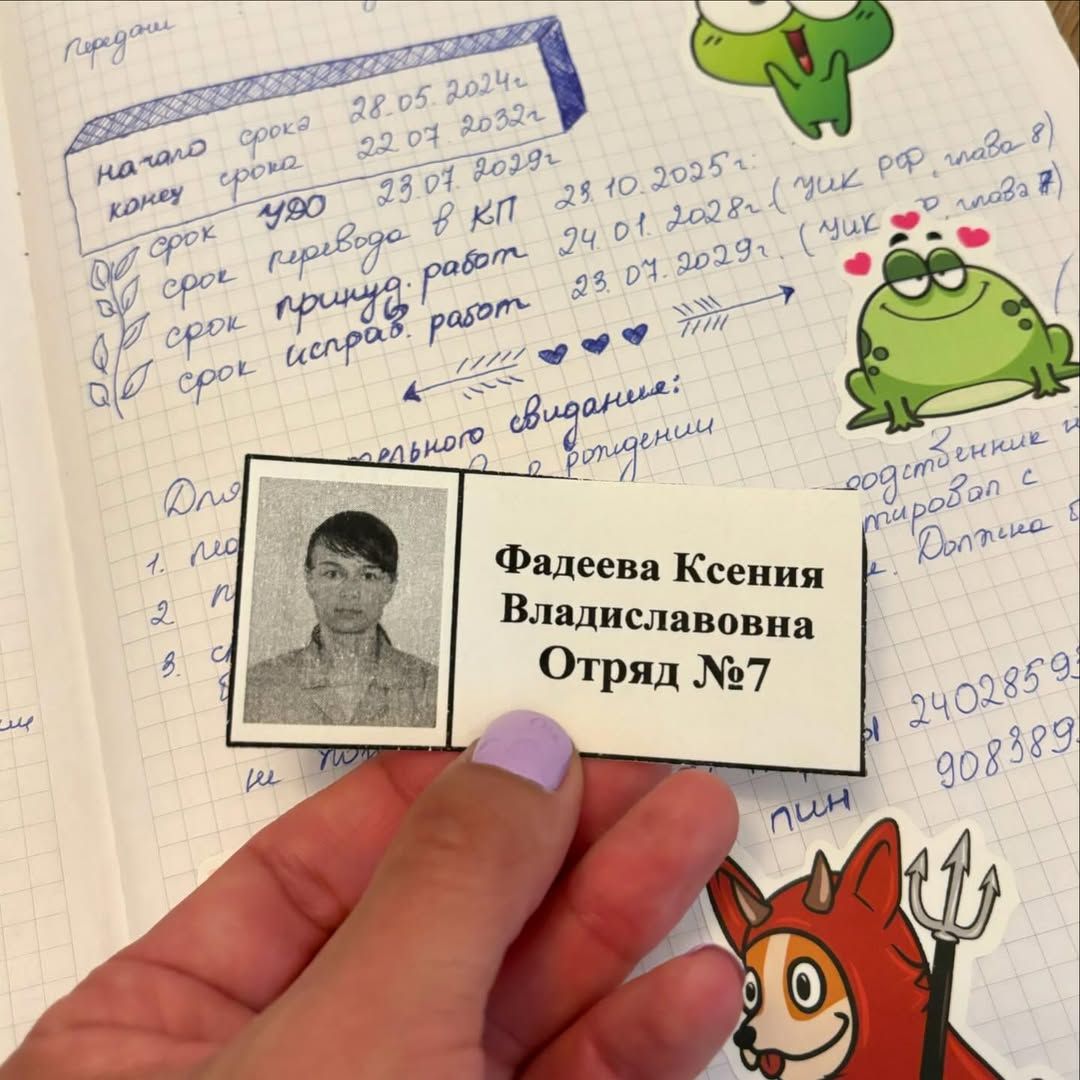 Передачи
начало срока 28.05.2024г
конец срока 22.07.2032г
срок УДО 23.07.2029г
срок перевода в КП 23.10.2025г.
срок принуд. работ 24.01.2028г. (УИК РФ, глава 8)
срок исправ. работ 23.07.2029г. (УИК глава 7)
Для тельного свидания:
рождении
1.
родственник
2
тировал с
3.
Должна
Фадеева Ксения
Владиславовна
Отряд №7
ы 2402859
не 908389
пин